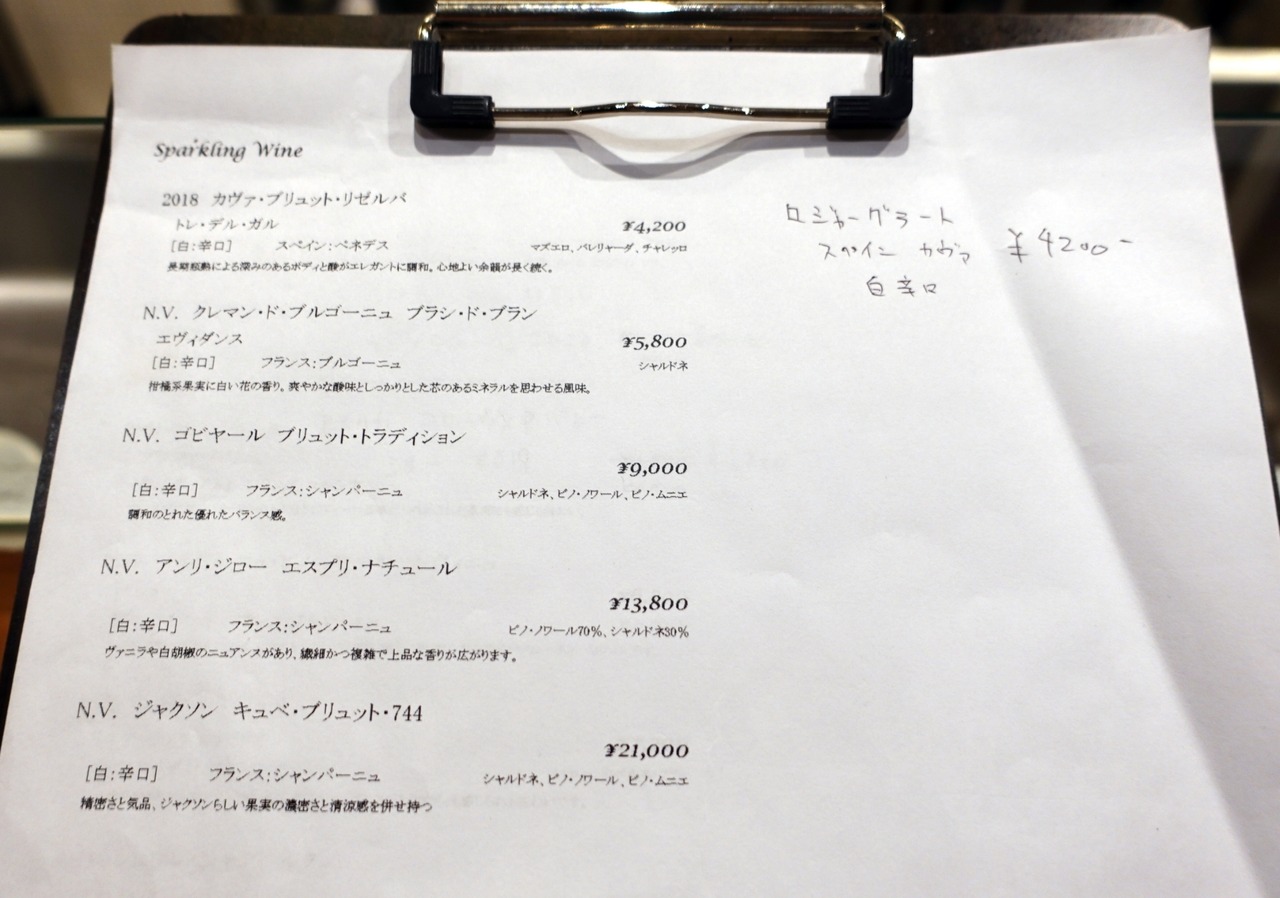 Sparkling Wine
2018 カヴァ・ブリュット・リゼルバ
トレ・デル・ガル
¥4,200
[白:辛口] スペイン:ペネデス マズエロ、パレリャーダ、チャレッロ
長期瓶熟による深みのあるボディと酸がエレガントに調和。心地よい余韻が長く続く。
N.V. クレマン・ド・ブルゴーニュ ブラン・ド・ブラン
エヴィダンス
¥5,800
[白:辛口] フランス:ブルゴーニュ シャルドネ
柑橘系果実に白い花の香り。爽やかな酸味としっかりとした芯のあるミネラルを思わせる風味。
N.V. ゴビヤール ブリュット・トラディション
¥9,000
[白:辛口] フランス:シャンパーニュ シャルドネ、ピノ・ノワール、ピノ・ムニエ
調和のとれた優れたバランス感。
N.V. アンリ・ジロー エスプリ・ナチュール
¥13,800
[白:辛口] フランス:シャンパーニュ ピノ・ノワール70%、シャルドネ30%
ヴァニラや白胡椒のニュアンスがあり、繊細かつ複雑で上品な香りが広がります。
N.V. ジャクソン キュベ・ブリュット・744
¥21,000
[白:辛口] フランス:シャンパーニュ シャルドネ、ピノ・ノワール、ピノ・ムニエ
精密さと気品、ジャクソンらしい果実の濃密さと清涼感を併せ持つ
ロジャーグラート
スペイン カヴァ ¥4200-
白辛口